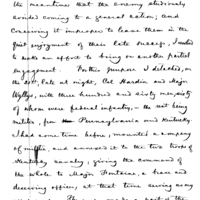 the meantime that the enemy studiously
avoided coming to a general action; and
conceiving it improper to leave them in the
enjoyment of their late success, I resolved
to make an effort to bring on another partial
engagement. For this purpose I detached, on
the 21st, late at night, Col. Hardin and Major
Wyllys, with three hundred and sixty men, sixty
of whom were federal infantry, the rest being
militia, from Pennsylvania and Kentucky.
I had some time before, mounted a company
of and annexed it to the two troops of
Kentucky cavalry, giving the command of
the whole to Major Fontaine, a brave and
deserving officer, at that time serving as my